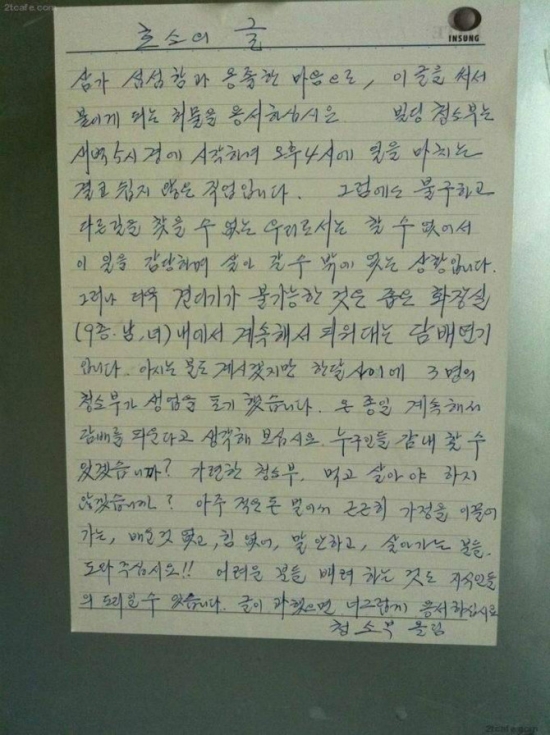 2tcafe.com
호소의 글
INSUNG
삼가 섭섭함과 옹졸한 마음으로, 이 글을 써서
붙이게 되는 허물을 용서하십시요. 빌딩 청소부는
새벽 5시경에 시작하여 오후 4시에 일을 마치는
결코 쉽지 않은 직업입니다. 그럼에도 불구하고
다른길을 찾을 수 없는 우리로서는 할 수 없어서
이 일을 감당하며 살아 갈 수 밖에 없는 상황입니다.
그러나 더욱 견디기가 불가능한 것은 좁은 화장실
(9층.남,녀) 내에서 계속해서 피워대는 담배연기
입니다. 아시는 분도 계시겠지만 한달 사이에 3명의
청소부가 생업을 포기 했습니다. 온 종일 계속해서
담배를 피운다고 생각해 보십시요. 누구인들 감내 할 수
있겠습니까? 가련한 청소부. 먹고 살아야 하지
않겠습니까? 아주 적은돈 벌어서 근근히 가정을 이끌어
가는, 배운것 없고, 힘 없어, 말 안하고, 살아가는 분들.
도와주십시요!! 어려운 분들 배려 하는 것도 지식인들
의 도리일 수 있습니다. 글이 과했으면 너그럽게 용서하십시요
청소부 올림
2tcafe.com